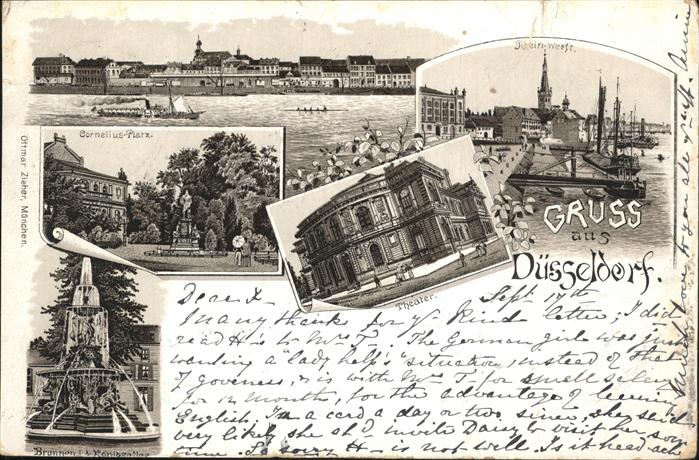 Rhein-Werft.
Cornelius-Platz.
Ottmar Zieher, München.
GRUSS
aus
Düsseldorf.
Theater.
Brunnen i. d. Königsallee
Dear X Sept 17th
Many thanks for yr kind letter; I did
read it to Mrs T. The German girl was just
wanting a "lady help's" situation, instead of that
of governess, & is with Mrs T. for small salary
for months, for the advantage of learning
English. In a card a day or two since, she said
very likely she shd invite Daisy to visit her some
time. So sorry H is not well. Is it head ach
Much love to you all yr aff. Annie